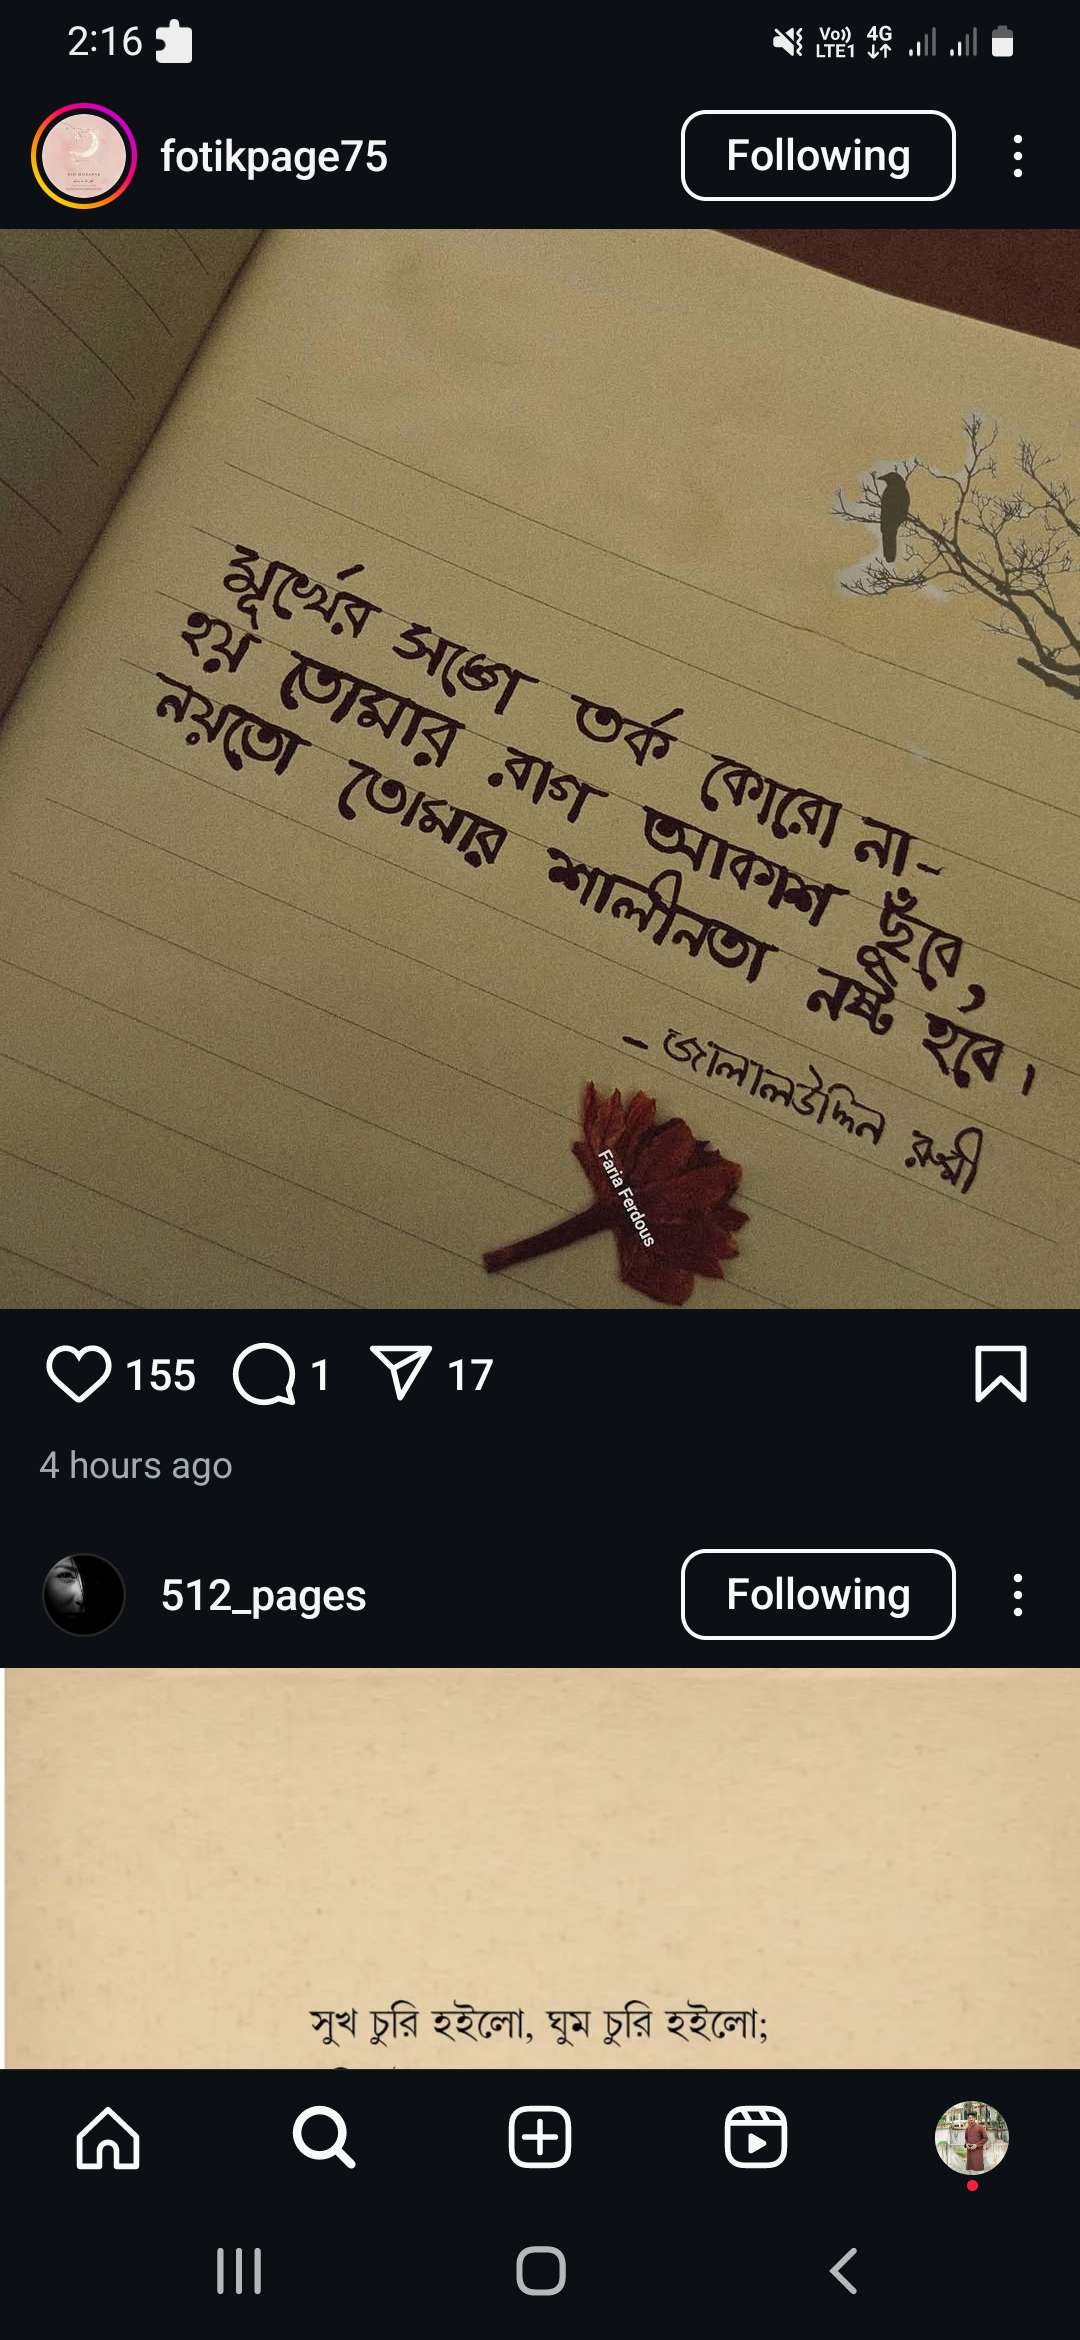 2:16
Vo))
LTE1
4G
fotikpage75
Following
মূর্খের সঙ্গে তর্ক কোরো না-
হয় তোমার রাগ আকাশ ছুঁবে,
নয়তো তোমার শালীনতা নষ্ট হবে।
- জালালউদ্দিন রুমী
Faria Ferdous
155
1
17
4 hours ago
512_pages
Following
সুখ চুরি হইলো, ঘুম চুরি হইলো;